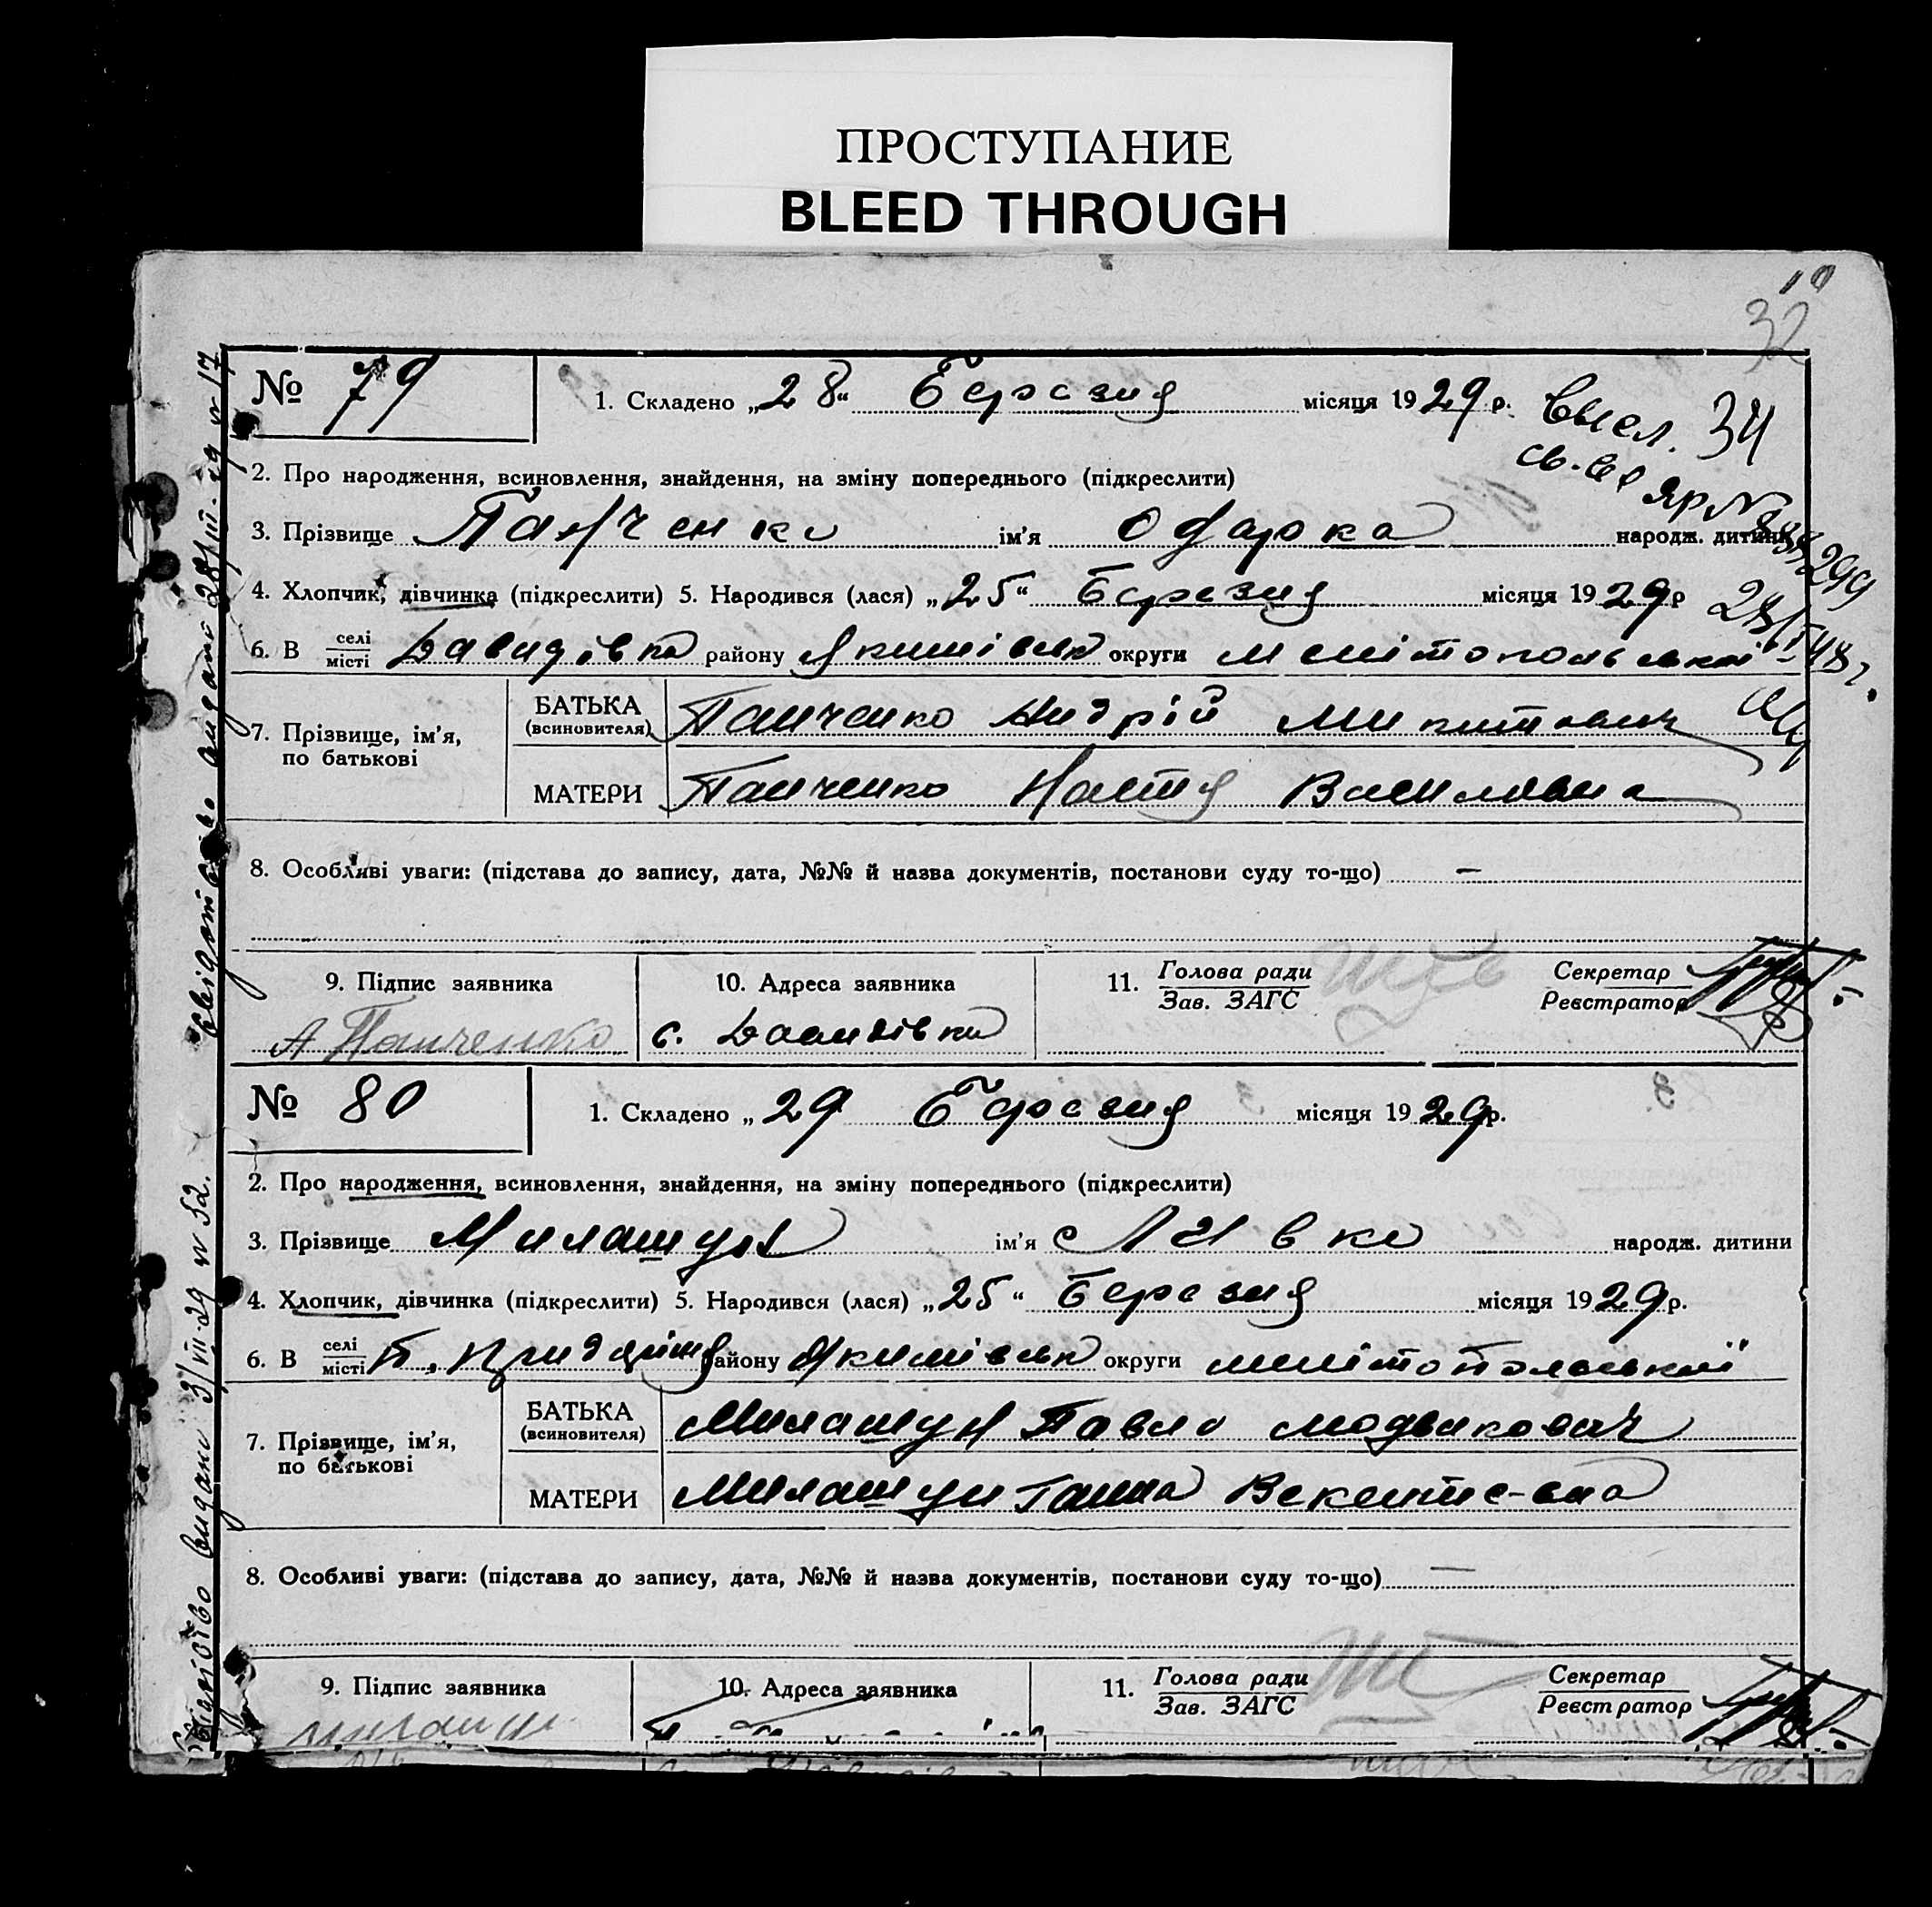 ПРОСТУПАНИЕ
BLEED THROUGH
32
№ 79
1. Складено „28“ Березня місяця 1929 р.
Высл. 34
св-во ЯР №
28/V 48 г.
2. Про народження, всиновлення, знайдення, на зміну попереднього (підкреслити)
3. Прізвище Панченко ім'я Одарка народж. дитини
4. Хлопчик, дівчинка (підкреслити) 5. Народився (лася) „25“ Березня місяця 1929 р
6. В селі місті Давидівка району Якимівськ округи Мелітопольської
7. Прізвище, ім'я, по батькові
БАТЬКА (всиновителя) Панченко Андрій Микитович
МАТЕРИ Панченко Настя Василівна
8. Особливі уваги: (підстава до запису, дата, №№ й назва документів, постанови суду то-що) —
9. Підпис заявника
10. Адреса заявника
11. Голова ради Зав. ЗАГС
Секретар Реєстратор
А Панченко
с. Давидівка
№ 80
1. Складено „29 Березня місяця 1929р.
2. Про народження, всиновлення, знайдення, на зміну попереднього (підкреслити)
3. Прізвище Милашун ім'я народж. дитини
4. Хлопчик, дівчинка (підкреслити) 5. Народився (лася) „25“ Березня місяця 1929 р.
6. В селі місті району Якимівськ округи Мелітопольської
7. Прізвище, ім'я, по батькові
БАТЬКА (всиновителя) Милашун Павло
МАТЕРИ Милашун Ганна
8. Особливі уваги: (підстава до запису, дата, №№ й назва документів, постанови суду то-що) —
9. Підпис заявника
10. Адреса заявника
11. Голова ради Зав. ЗАГС
Секретар Реєстратор
Свідотство видано 28/III-29 №17
Свідотство видано 3/VII-29 № 52.